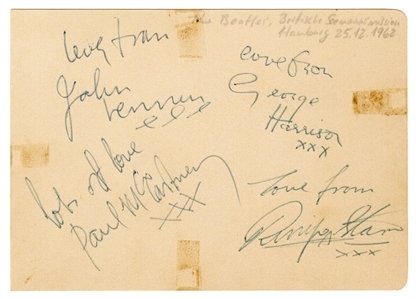 The Beatles, Britische
Hamburg 25.12.1962
love from
John
Lennon
xxx
love from
George
Harrison
xxx
lots of love
Paul McCartney
xxx
love from
Ringo Starr
xxx